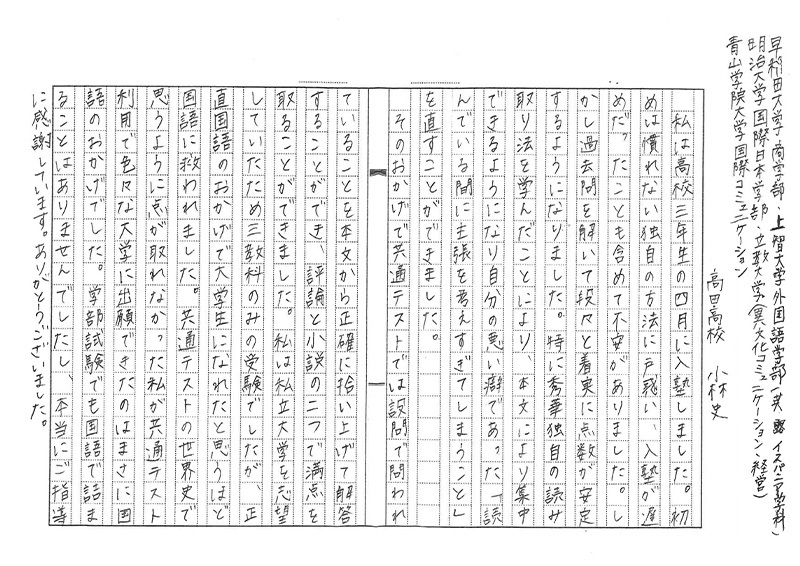 早稲田大学商学部・上智大学外国語学部(英語・イスパニア学科)
明治大学国際日本学部・立教大学(異文化コミュニケーション、経営)
青山学院大学国際コミュニケーション
高田高校　小林 史
私は高校三年生の四月に入塾しました。初
めは慣れない独自の方法に戸惑い、入塾が遅
めだったことも含めて不安がありました。し
かし過去問を解いて段々と着実に点数が安定
するようになりました。特に秀華独自の読み
取り法を学んだことにより、本文により集中
できるようになり自分の悪い癖であった「読
んでいる間に主張を考えすぎてしまうこと」
を直すことができました。
そのおかげで共通テストでは設問で問われ
ていることを本文から正確に拾い上げて解答
することができ、評論と小説の二つで満点を
取ることができました。私は私立大学を志望
していたため三教科のみの受験でしたが、正
直国語のおかげで大学生になれたと思うほど
国語に救われました。共通テストの世界史で
思うように点が取れなかった私が共通テスト
利用で色々な大学に出願できたのはまさに国
語のおかげでした。学部試験でも国語で詰ま
ることはありませんでしたし、本当にご指導
に感謝しています。ありがとうございました。